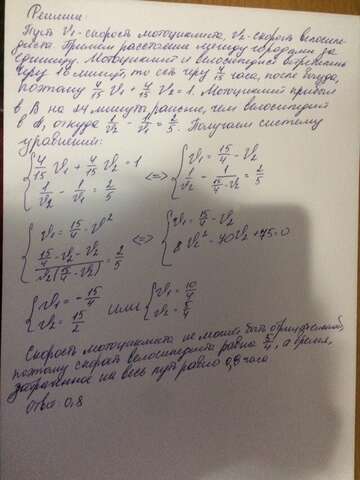 Решение:
Пусть V₁-скорость мотоциклиста, V₂-скорость велосипе-
диста. Примем расстояние между городами за
единицу. Мотоциклист и велосипедист встретились
через 16 минут, то есть через 4/15 часа, после
поэтому 4/15 V₁ + 4/15 V₂ = 1. Мотоциклист прибыл
в B на 24 минуты раньше, чем велосипедист
в A, откуда 1/V₂ - 1/V₁ = 2/5. Получаем систему
уравнений:
{ 4/15 V₁ + 4/15 V₂ = 1 <=> { V₁ = 15/4 - V₂
1/V₂ - 1/V₁ = 2/5 1/V₂ - 1/(15/4 - V₂) = 2/5
{ V₁ = 15/4 - V² <=> { V₁ = 15/4 - V₂
(15/4 - V₂ - V₂)/(V₂(15/4 - V₂)) = 2/5 8V₂² - 40V₂ + 75 = 0
{ V₁ = - 15/4 или { V₁ = 10/4
V₂ = 15/2 V₂ = 5/4
Скорость мотоциклиста не может быть отрицательной,
поэтому скорость велосипедиста равна 5/4, а время,
затраченное на весь путь равно 0,8 часа
Ответ: 0,8